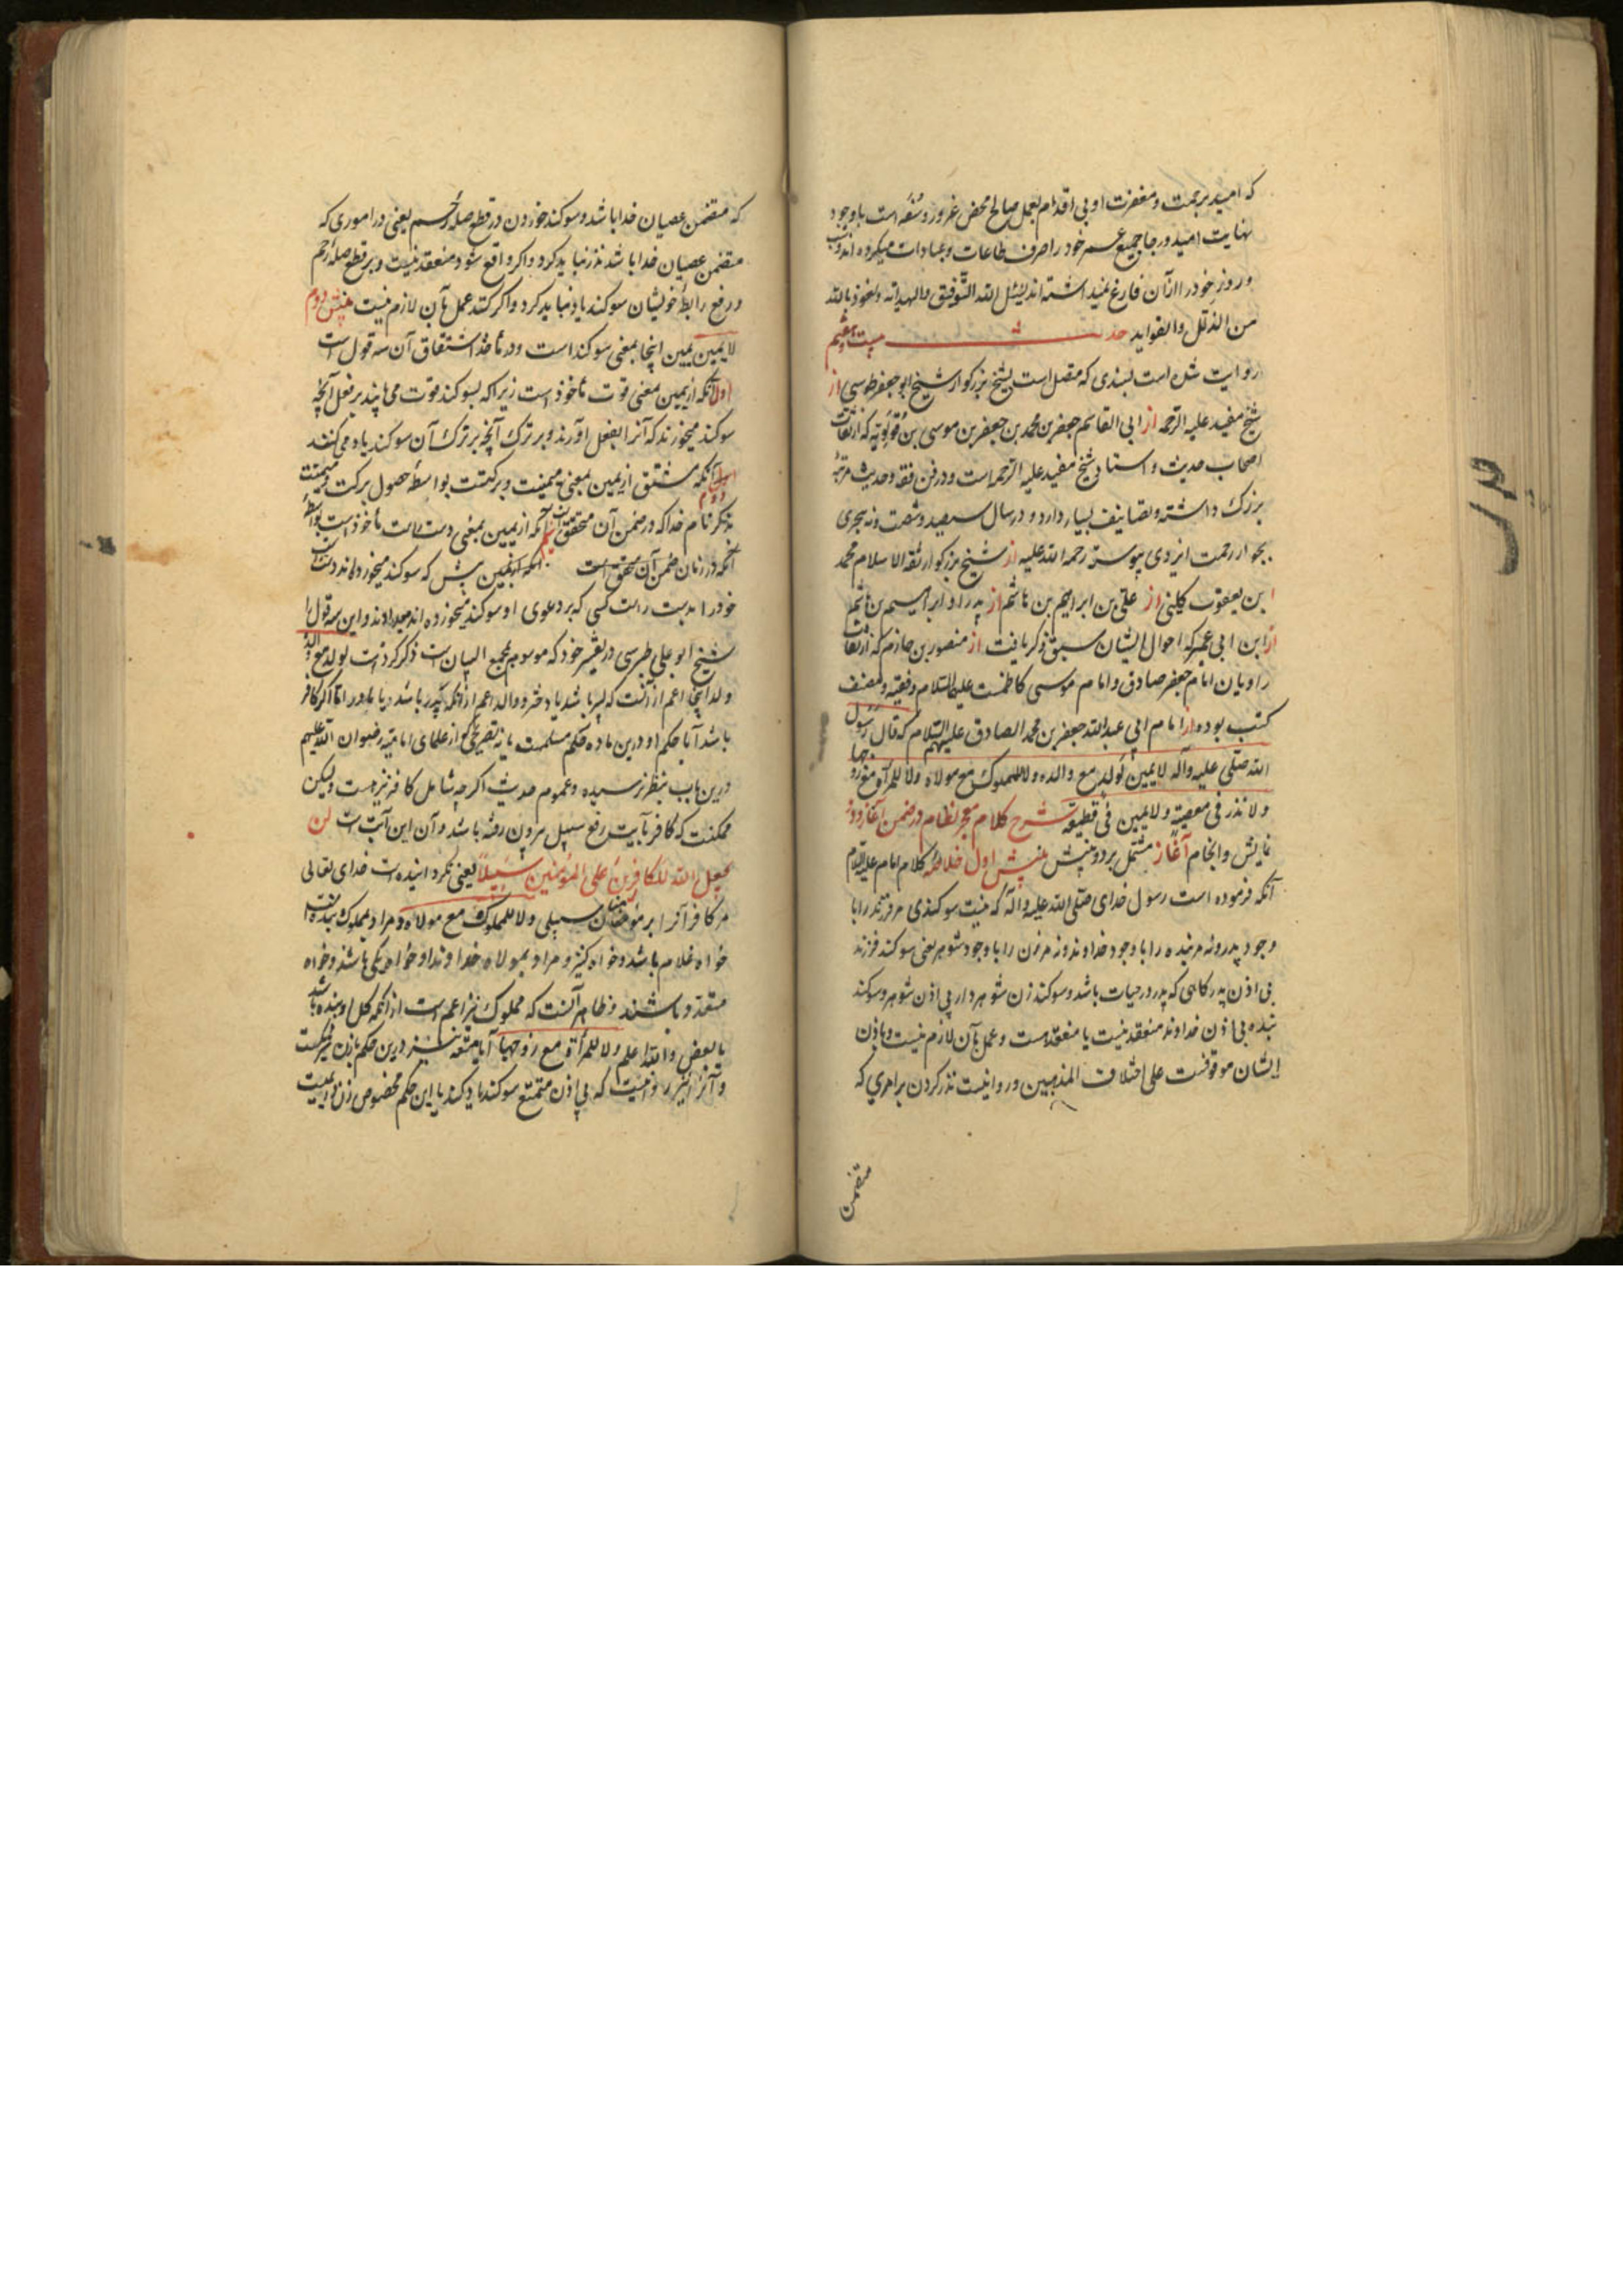 که امید برحمت و مغفرت او بی اقدام بعمل صالح محض غرور و سفه است باوجود
نهایت امید و رجا جمیع عمر خود را صرف طاعات و عبادات میکرده اند و شب
و روز خود را از آن فارغ نمیداشته اند نسئل الله التوفیق والهدایه ونعوذ بالله
من الذلل والغوایه حدیث بیست وهفتم
روایت شده است بسندی که متصل است بشیخ بزرگوار شیخ ابو جعفر طوسی از
شیخ مفید علیه الرحمه از ابی القاسم جعفر بن محمد بن جعفر بن موسی بن قولویه که از ثقات
اصحاب حدیث و استاد شیخ مفید علیه الرحمه است و در فن فقه و حدیث مرتبه
بزرک داشته و تصانیف بسیار دارد و در سال سیصد و شصت و نه هجری
بجوار رحمت ایزدی پیوسته رحمه الله علیه از شیخ بزرکوار ثقه الاسلام محمد
ابن یعقوب کلینی از علی بن ابراهیم بن هاشم از پدر او ابراهیم بن هاشم
از ابن ابی عمیر که احوال ایشان سبق ذکر یافت از منصور بن حازم که از ثقات
راویان امام جعفر صادق و امام موسی کاظمست علیهما السلام و فقیه و مصنف
کتب بوده از امام ابی عبدالله جعفر بن محمد الصادق علیهم السلام که قال رسول
الله صلی علیه وآله لا یمین لولد مع والده ولا للمملوک مع مولاه ولا للمرأة مع زوجها
ولا نذر فی معصیة ولا یمین فی قطیعة شرح کلام معجز نظام در ضمن آغاز و دو
نمایش و انجام آغاز مشتمل بر دو بینش بینش اول خلاصه کلام امام علیه السلام
آنکه فرموده است رسول خدای صلی الله علیه و آله که نیست سوکندی مر فرزند را با
وجود پدر و نه مر بنده را با وجود خداوند و نه مر زن را با وجود شوهر یعنی سوکند فرزند
بی اذن پدر کاهی که پدر در حیات باشد و سوکند زن شوهر دار بی اذن شوهر و سوکند
بنده بی اذن خداوند منعقد نیست یا منعقد هست و عمل بآن لازم نیست و باذن
ایشان موقوفست علی اختلاف المذهبین و روا نیست نذر کردن بر امری که
متضمن
که متضمن عصیان خدا باشد و سوکند خوردن در قطع صله رحم یعنی در اموری که
متضمن عصیان خدا باشد نذر نباید کرد و اکر واقع شود منعقد نیست و بر قطع صله رحم
و رفع رابطه خویشان سوکند یاد نباید کرد و اکر کنند عمل بآن لازم نیست بینش دوم
لا یمین یمین اینجا بمعنی سوکند است و در ماخذ اشتقاق آن سه قول است
اول آنکه از یمین بمعنی قوت ماخوذ است زیرا که بسوکند قوت می یابند بر فعل آنچه
سوکند میخورند که آنرا بفعل آورند و بر ترک آنچه بر ترک آن سوکند یاد می کنند
دوم آنکه مشتق از یمین بمعنی میمنت و برکتست بواسطه حصول برکت و میمنت
بذکر نام خدا که در ضمن آن متحقق است سیم آنکه از یمین بمعنی دست راست ماخوذ است بواسطه
آنکه در زمان پیش که سوکند میخورده اند دست راست
خود را بدست راست کسی که بر دعوی او سوکند میخورده اند میداده اند و این سه قول را
شیخ ابو علی طبرسی در تفسیر خود که موسوم بمجمع البیان است ذکر کرده است لولد مع والده
ولد اینجا اعم از آنست که پسر باشد یا دختر و والد اعم از آنکه پدر باشد یا مادر اما اکر کافر
باشد آیا حکم او درین ماده حکم مسلمست یا نه تصریحی از علمای امامیه رضوان الله علیهم
درین باب بنظر نرسیده و عموم حدیث اکرچه شامل کافر نیز هست ولیکن
ممکنست که کافر بآیت رفع سبیل بیرون رفته باشد و آن این آیت است لن
یجعل الله للکافرین علی المؤمنین سبیلا یعنی نکردانیده است خدای تعالی
مر کافرانرا بر مؤمنان سبیلی ولا للمملوک مع مولاه و مراد بمملوک بنده است
خواه غلام باشد و خواه کنیز و مراد بمولاه خداوند او خواه یکی باشد و خواه
متعدد باشند و ظاهر آنست که مملوک نیز اعم است از آنکه کل او بنده باشد
یا بعض والله اعلم ولا للمرأة مع زوجها آیا متعه نیز درین حکم بازن شریکست
و آنرا نیز روا نیست که بی اذن متمتع سوکند یاد کند یا این حکم مخصوص زن دایمیست